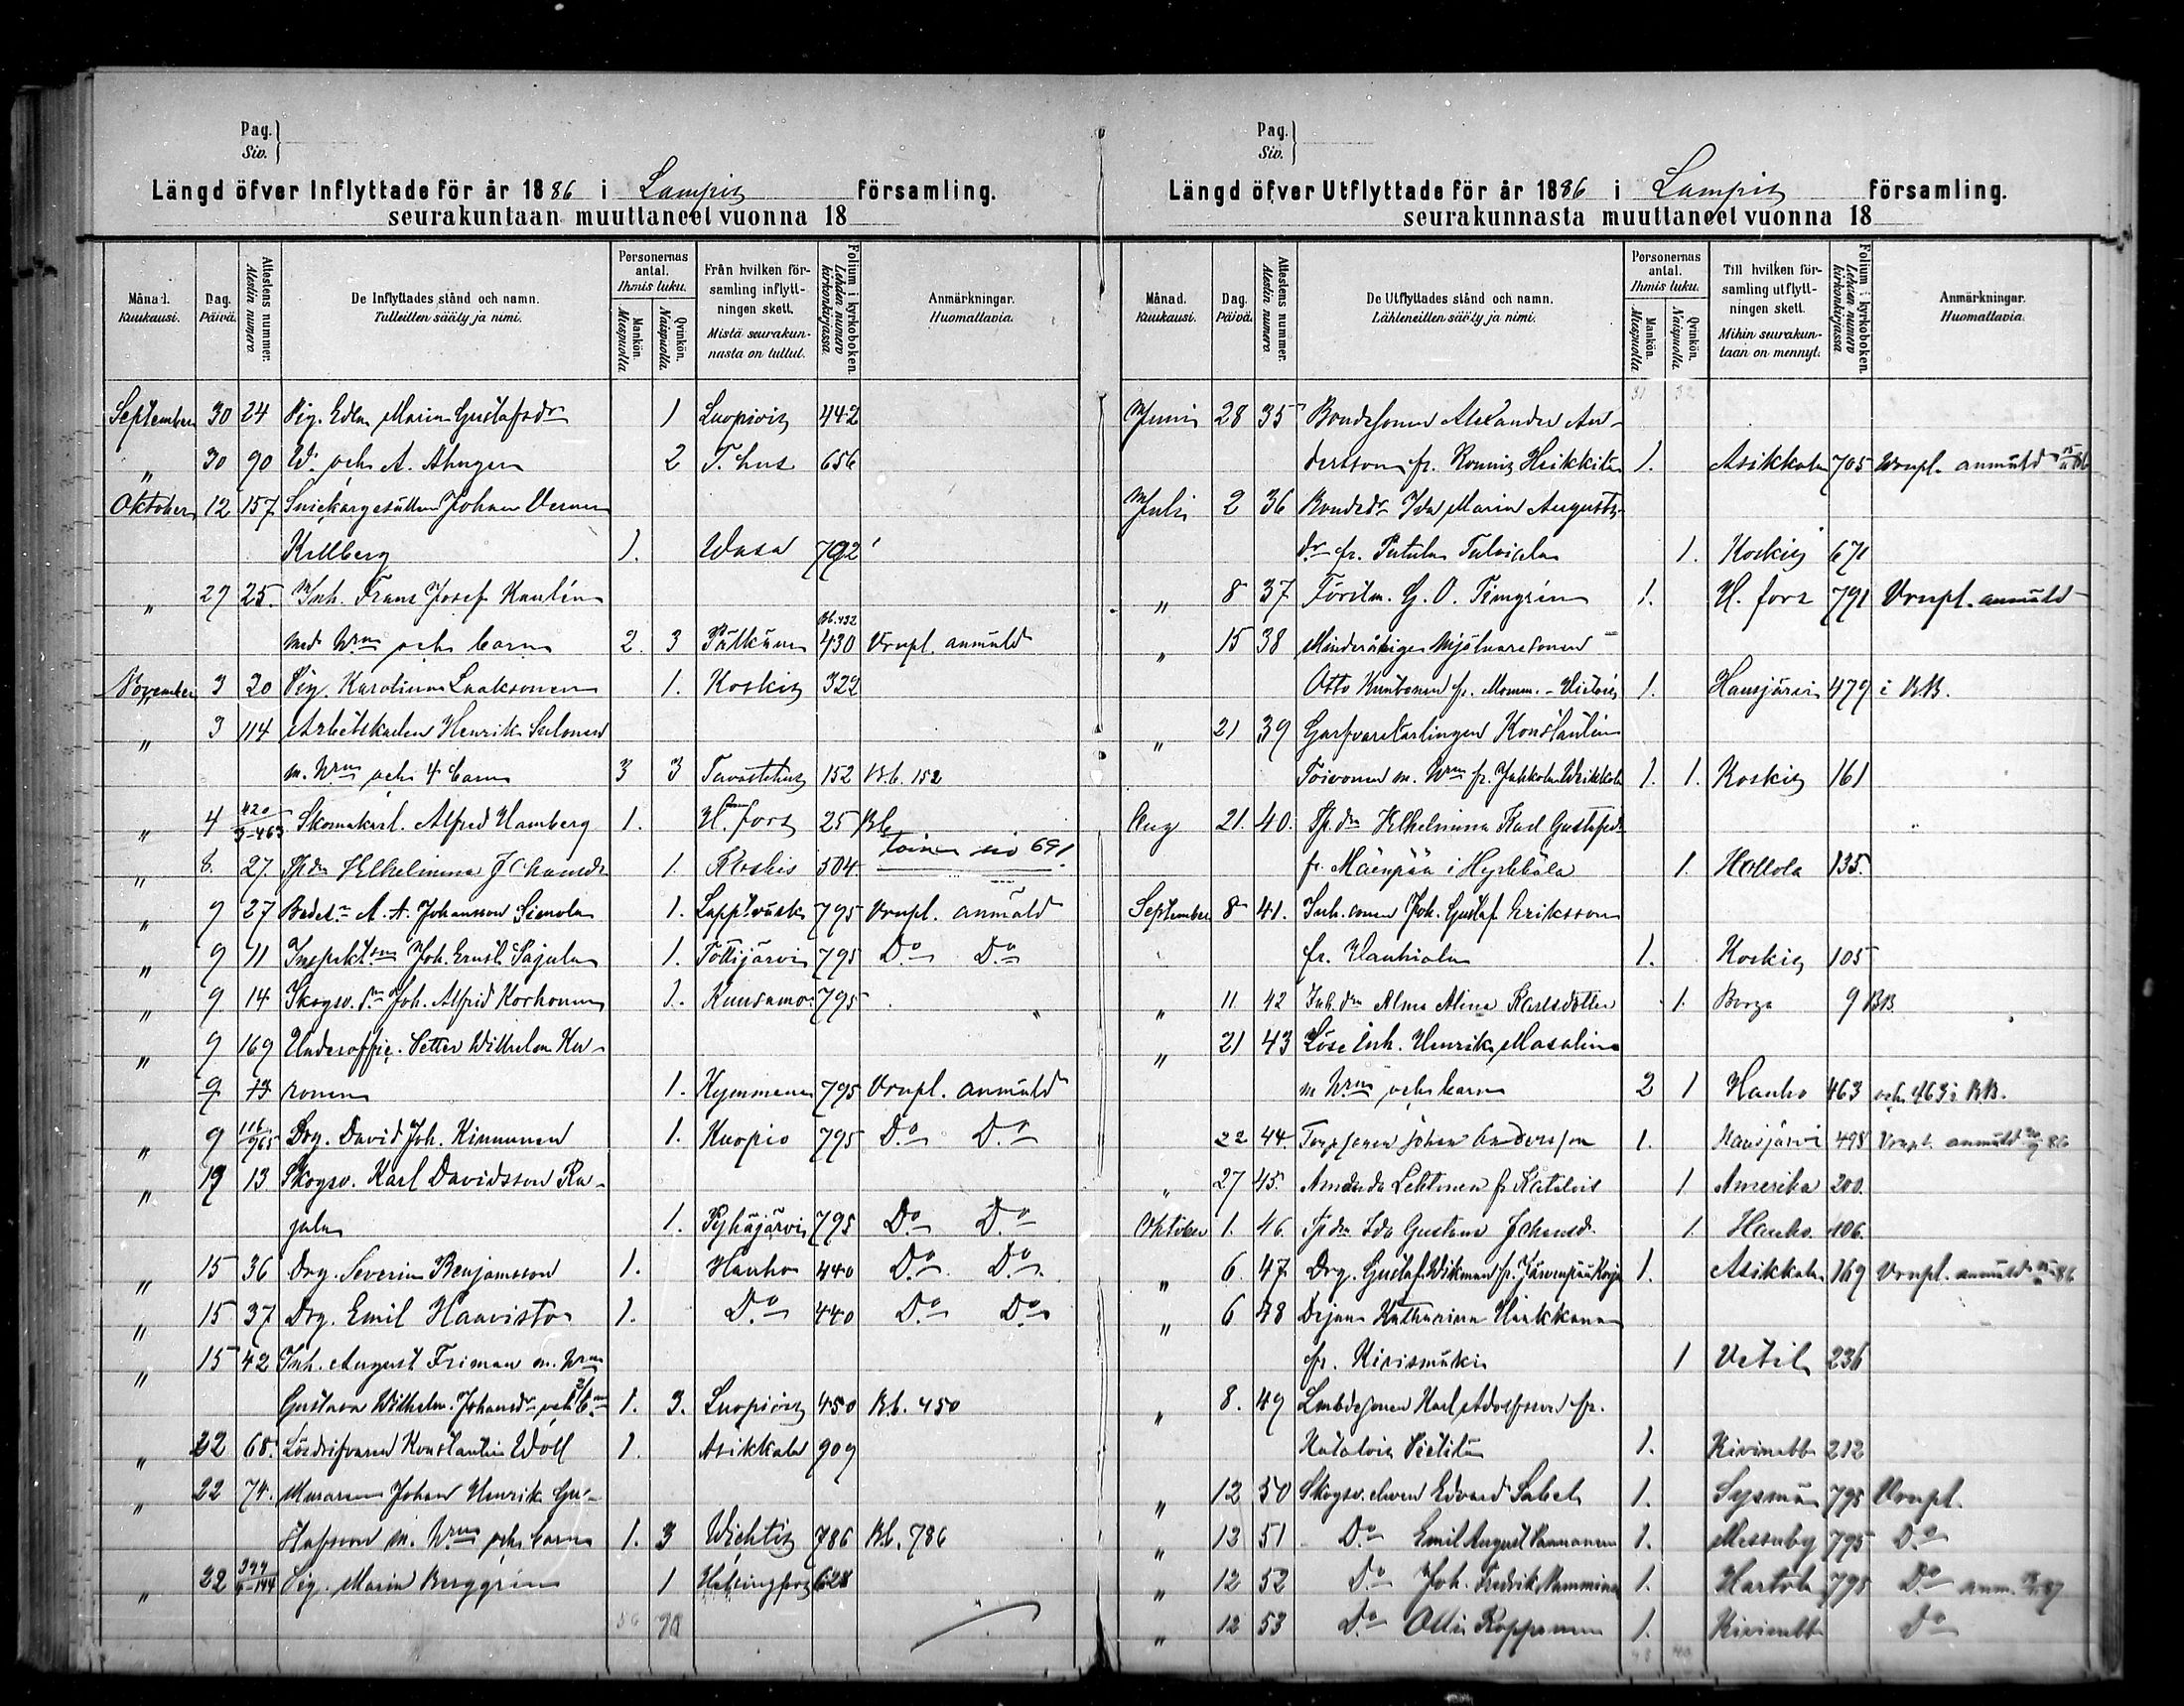 Pag.
Siv.
Längd öfver Inflyttade för år 1886 i Lampis församling.
seurakuntaan muuttaneet vuonna 18
Månad. Kuukausi.
Dag. Päivä.
Attestens nummer. Alestin numero.
De Inflyttades stånd och namn.
Tulleitten sääty ja nimi.
Personernas antal. Ihmis luku.
Mankön. Miespuolia.
Qvinkön. Naispuolia.
Från hvilken församling inflyttningen skett.
Mistä seurakunnasta on tullut.
Folium i kyrkoboken. Lehden numero kirkonkirjassa.
Anmärkningar. Huomattavia.
September 30 24 Pig. Edla Maria Gustafsdr 1 Luopiois 442
" 30 90 W. och A. Ahngren 2 T. hus 656
Oktober 12 157 Snickargesällen Johan Verner
Kellberg 1. Wasa 792
" 27 25. Inh. Frans Josef Kaulin
med hrun och barn 2. 3 Pälkäne Bb. 432 430 Vrnpl. anmäld
November 3 20 Pig. Karolina Laaksonen 1. Koskis 322
" 3 114 Arbetskarlen Henrik Salonen
m. hru och 4 barn 3 3 Tavastehus 152 Bb. 152
" 4 420 Skomakarl. Alfred Hamberg 1. H. fors 25 Bb
" 8. 27. Vilhelmina Johansdr 1. Koskis 504 691
" 9 27 A. A. Johansson Simola 1. Lapptväsk 795 Vrnpl. anmäld
" 9 11 Joh. Ernst Sajula 1. Tottijärvi 795 Do Do
" 9 14 Skogsv. Joh. Alfrid Korhonen 1. Kuusamo 795
" 9 169 Underoffic. Petter Wilhelm Ku-
9 13 ronen 1. Kymmene 795 Vrnpl. anmäld
" 9 116 965 Drg. David Joh. Kinnunen 1. Kuopio 795 Do Do
" 19 13 Skogsv. Karl Davidsson Ra-
jala 1. Pyhäjärvi 795 Do Do
" 15 36 Drg. Severin Benjamsson 1. Hauho 440 Do Do
" 15 37 Drg. Emil Haavisto 1. Do 440 Do Do
" 15 42 Inh. August Friman m. hru
Gustava Wilhelm. Johansdr och 2 b. 1. 3. Luopiois 450 Bb. 450
" 22 68. Lösdrifvaren Konstantin Woll 1. Asikkala 909
" 22 74. Muraren Johan Henrik Gu-
stafsson m. hru och barn 1. 3 Wichtis 786 Bb. 786
" 22 Pig. Maria Berggrén 1 Helsingfors 628
Pag.
Siv.
Längd öfver Utflyttade för år 1886 i Lampis församling.
seurakunnasta muuttaneet vuonna 18
Månad. Kuukausi.
Dag. Päivä.
Attestens nummer. Alestin numero
De Utflyttades stånd och namn.
Lähteneitten sääty ja nimi.
Personernas antal. Ihmis luku.
Mankön. Miespuolia
Qvinkön. Naispuolia.
Till hvilken församling utflyttningen skett.
Mihin seurakuntaan on mennyt.
Folium i kyrkoboken. Lehden numero kirkonkirjassa
Anmärkningar. Huomattavia.
Juni 28 35 Bondesonen Alexander An-
dersson fr. Heikkilä 1. Asikkala 705 Vrnpl. anmäld 86
Juli 2 36 Bondedr Ida Maria Augusts-
dr fr. Putula 1. Koskis 671
" 8 37 Förvltn. G. O. Timgrén 1. H. fors 791 Vrnpl. anmäld
" 15 38 Minderårige Mjölnaresonen
Otto fr. Momm. 1. Hausjärvi 479 i BB.
" 21 39 Garfvarelärlingen Konstantin
Toivonen m. hru fr. 1. 1. Koskis 161
Aug 21. 40. Vilhelmina Karl Gustafsdr
fr. Mäenpää i 1. Hollola 135.
September 8 41. Inh. sonen Joh. Gustaf Eriksson
fr. 1. Koskis 105
" 11. 42 Inh. dtr Alma Alina Karlsdotter 1. Borgå 9 BB.
" 21 43 Löse Inh. Henrik Masalin
m hru och barn 2 1 Hauho 463 och 463 i BB.
22 44. Torpsonen Johan Andersson 1. Hausjärvi 498 Vrnpl. anmäld 86
" 27 45. Amanda Lehtonen fr Katalois 1 Amerika 200.
Oktober 1. 46. Ida Gustava Johansd. 1. Hauho. 406.
" 6. 47. Drg. Gustaf Wikman fr. Järvenpää 1. Asikkala 169 Vrnpl. anmäld 86
" 6 48 Dejan Katharina Haakkana
fr. Kivismäki 1 Vetil 236
" 8. 49 Karl Adolfsson fr.
Katalois 1. Kivinebb 212
" 12 50 Skogsv. eleven Edvard Sabel 1. Sysmä 795 Vrnpl.
" 12 51 Do Emil August 1. Messuby 795 Do
" 12 52 Do Joh. Fredrik 1. Hartola 795 Do anm. 87
" 12 53 Do Otto Ropponen 1. Kivinebb Do